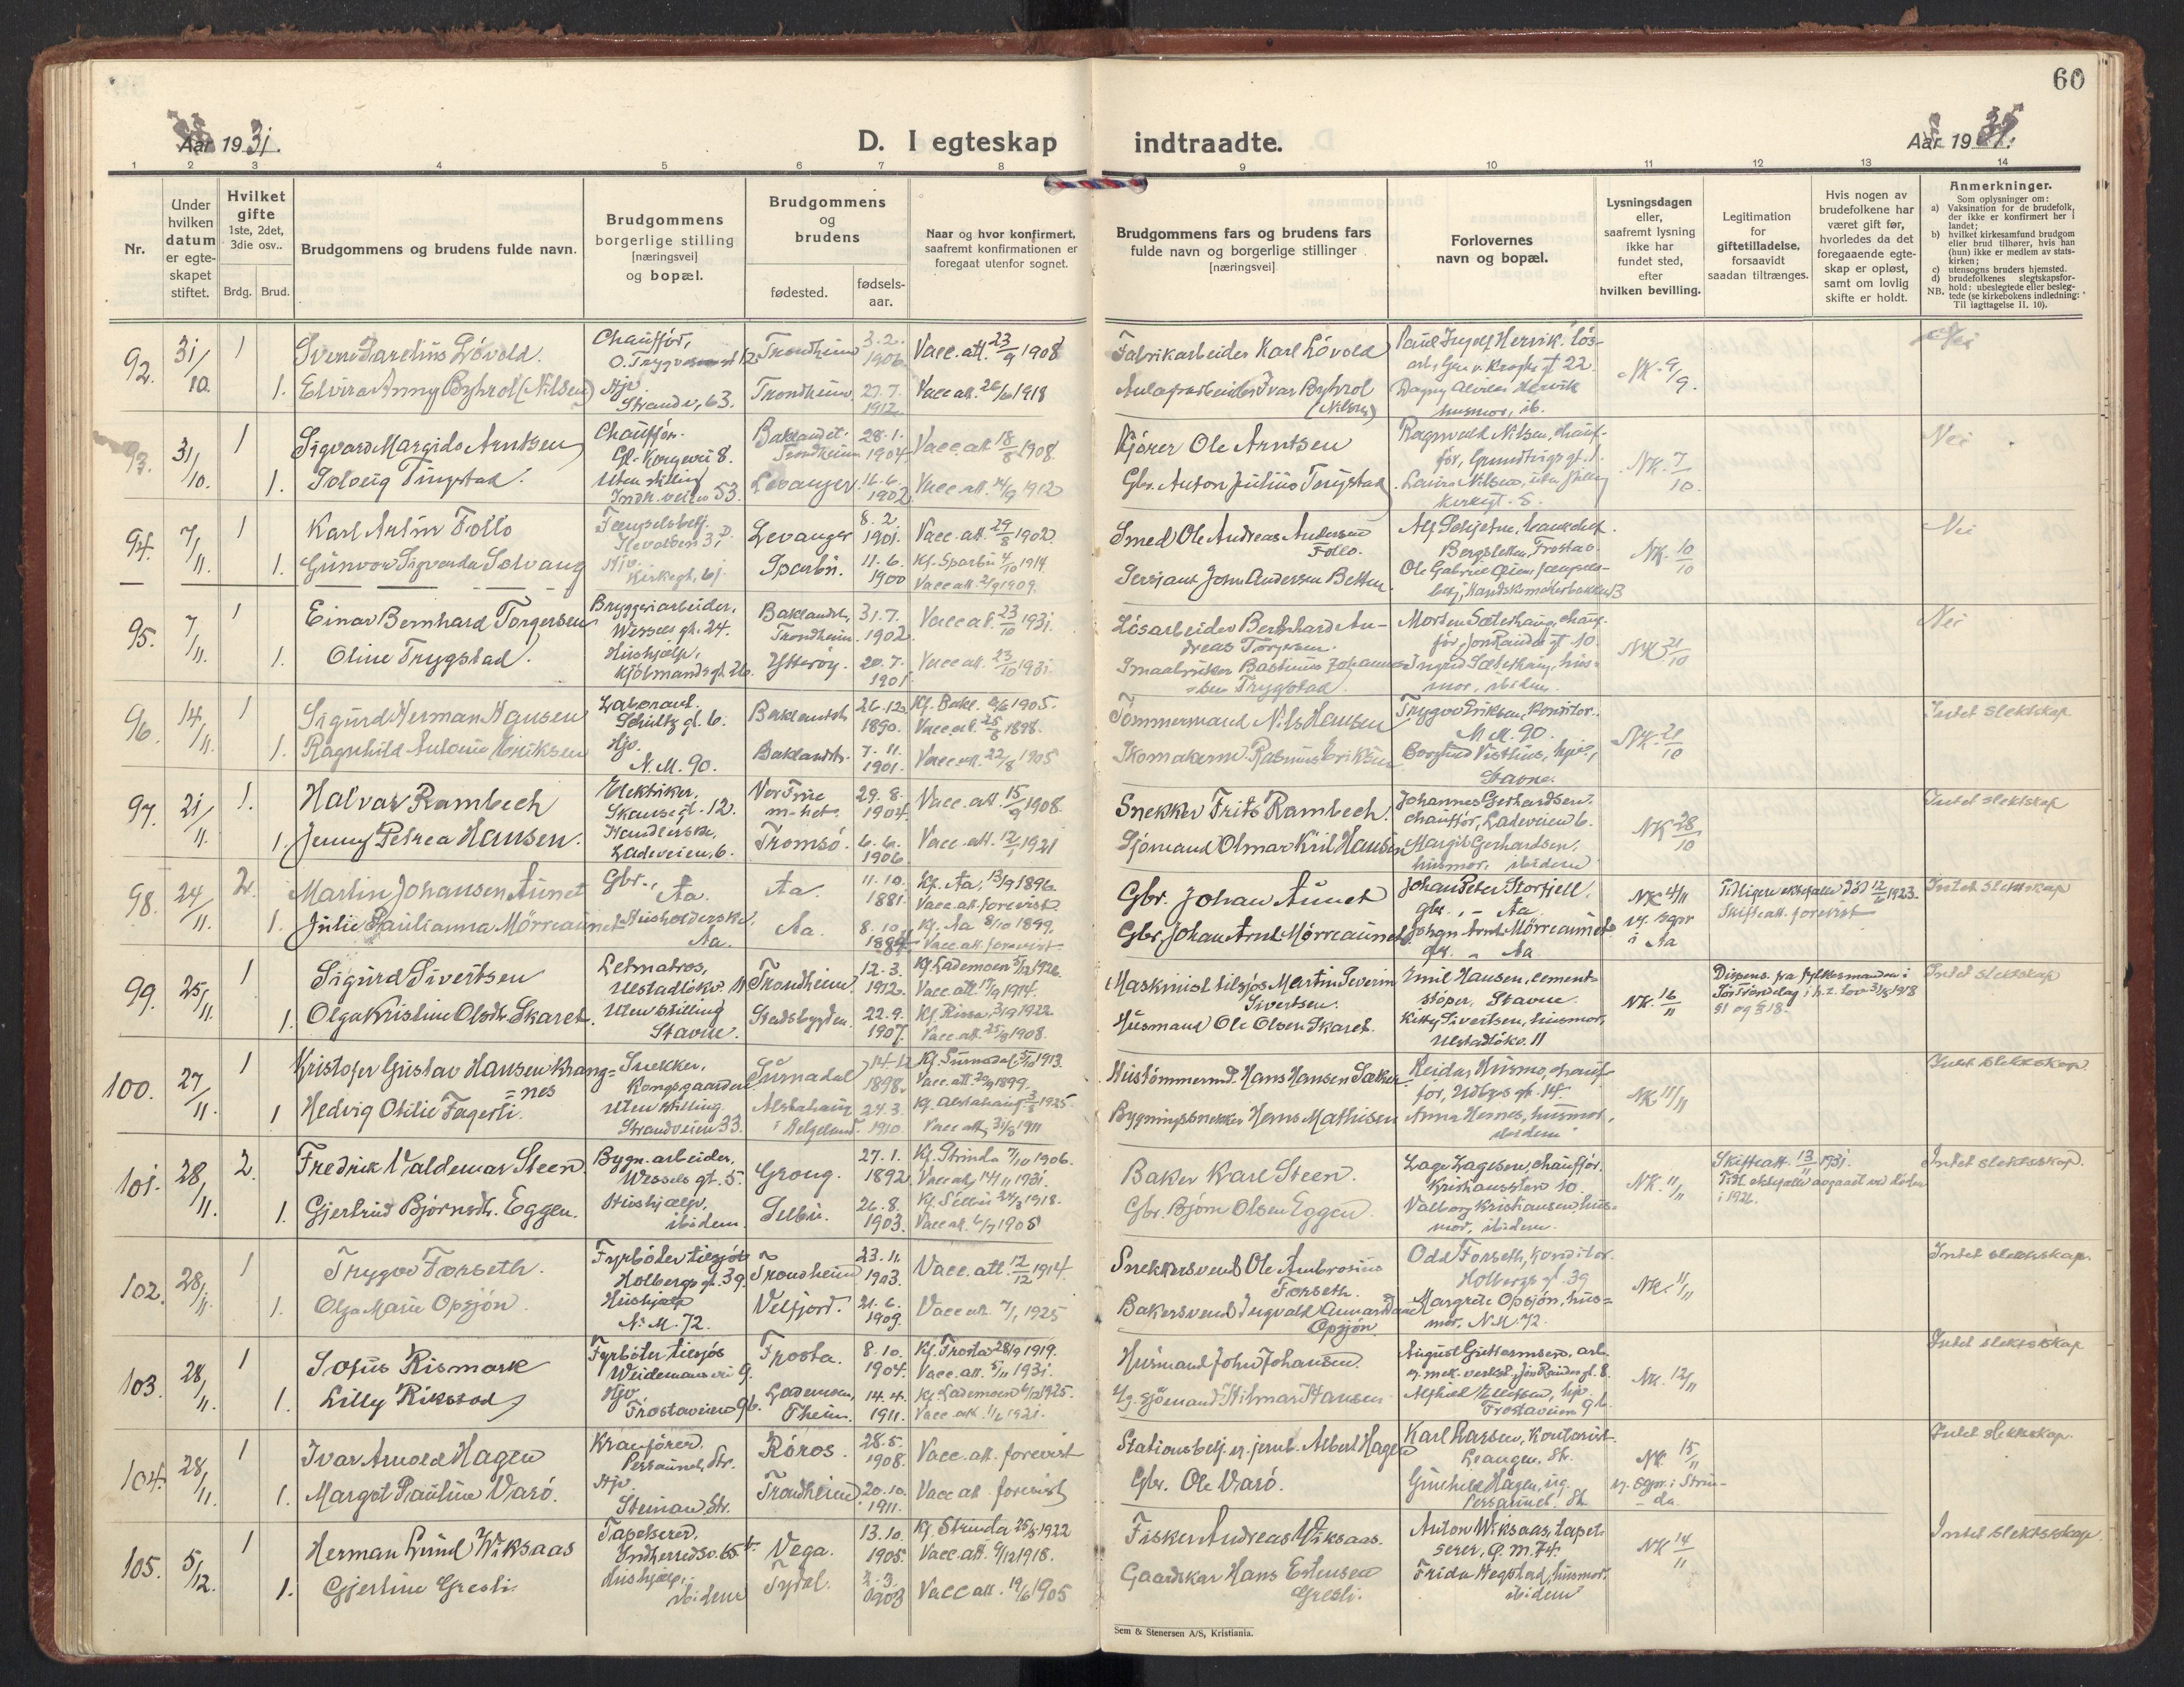 60
Aar 1931.
D. I egteskap indtraadte.
Aar 19
1 2 3 4 5 6 7 8 9 10 11 12 13 14
Nr.
Under hvilken datum er egteskapet stiftet.
Hvilket gifte 1ste, 2det, 3die osv..
Brdg. Brud.
Brudgommens og brudens fulde navn.
Brudgommens borgerlige stilling [næringsvei] og bopæl.
Brudgommens og brudens
fødested. fødselsaar.
Naar og hvor konfirmert, saafremt konfirmationen er foregaat utenfor sognet.
Brudgommens fars og brudens fars fulde navn og borgerlige stillinger [næringsvei]
Forlovernes navn og bopæl.
Lysningsdagen eller, saafremt lysning ikke har fundet sted, efter hvilken bevilling.
Legitimation for giftetilladelse, forsaavidt saadan tiltrænges.
Hvis nogen av brudefolkene har været gift før, hvorledes da det foregaaende egteskap er opløst, samt om lovlig skifte er holdt.
Anmerkninger.
Som oplysninger om:
a) Vaksination for de brudefolk, der ikke er konfirmert her i landet;
b) hvilket kirkesamfund brudgom eller brud tilhører, hvis han (hun) ikke er medlem av statskirken;
c) utensogns bruders hjemsted.
d) brudefolkenes slegtskapsforhold: ubeslegtede eller beslegtede (se kirkebokens indledning:
NB. Til iagttagelse II. 10).
92. 31/10. 1 Sverre Løvold. Chauffør, Trondheim 3.2. 1906 Vacc. att. 23/9 1908 Fabrikarbeider Karl Løvold NK. 9/9. Nei
1. Elvira Anny Byhrol (Nilsen) Hjv. Strandv, 63. Trondheim 27.7. 1912 Vacc att. 26/6 1918 Ivar Byhrol (Nilsen) husmor, ib.
93. 31/10. 1 Sigvard Margido Arntsen Chauffør. Baklandet Trondheim 28.1. 1904 Vacc att 18/8 1908 Kjører Ole Arntsen Ragnvald Nilsen, chauffør, NK. 7/10. Nei
1. Solveig Tingstad. Uten stilling Indh. veien 53. Levanger 16.6. 1902 Vacc. att. 14/9 1912 Gbr. Anton Julius Tingstad
94. 7/11. 1 Karl Antin Follo Fængselsbetj. Levanger 8.2. 1901. Vacc. att. 29/8 1902. Smed Ole Andreas Andersen Follo. NK. 10/10 Nei
1. Gunvor Sigvarda Solvang Hjv. Kirkegt, 61 Sparbu. 11.6. 1900 Kf. Sparbu 4/10 1914 Vacc att. 2/9 1909. Sersjant John Andersen Betten
95. 7/11. 1 Einar Bernhard Torgersen Bryggeriarbeider, Wessels gt. 24. Baklandet, Trondheim. 31.7. 1902. Vacc att. 23/10 1931 Løsarbeider Bernhard Andreas Torgersen. Morten Sæterhaug, chauffør, NK 21/10 Nei
1. Oline Trygstad. Hushjælp, Kjøbmandsgt. 26. Ytterøy. 20.7. 1901. Vacc att. 23/10 1931. Smaabruker Bastinus Johannesen Trygstad. Ingrid Sæterhaug, husmor, ibidem.
96. 14/11. 1 Sigurd Herman Hansen Laborant. Schultz gt. 6. Baklandet 26.12. 1890. Kf. Bakl. 1905. Vacc. att. 25/8 1898. Tømmermand Nils Hansen Trygve Eriksen, Konditor. N.M. 90. NK. 21/10 Intet slektskap
1. Ragnhild Antonie Eriksen Hjv. N.M. 90. Baklandet. 7.11. 1901. Vacc. att. 22/8 1905 Skomakerm. Rasmus Eriksen Stavne.
97. 21/11. 1. Halvar Rambech Elektriker, Skansegt. 12. Vor Frue m-het. 29.8. 1904. Vacc. att. 15/9 1908. Snekker Frits Rambech. Johannes Gerhardsen. chauffør, Ladeveien 6. NK 28/10 Intet slektskap
1. Jenny Petrea Hansen. Handlerske, Ladeveien, 6. Tromsø. 6.6. 1906 Vacc. att. 1921 Sjømand Olmar Kril Hansen Margit Gerhardsen, husmor, ibidem
98. 24/11. 2. Martin Johansen Aunet Gbr., Aa. Aa. 11.10. 1881. Kf. Aa, 13/9 1896. Vacc. att. forevist. Gbr. Johan Aunet Johan Peter Storfjell. gbr., - Aa NK 4/11 Tidligere ektefælle død 12/6 1923. Skifteatt. forevist Intet slektskap
1. Julie Paulianna Mørreaunet Husholderske, Aa. Aa. 8.10. 1884 Kf. Aa 8/10 1899. Vacc. att. forevist. Gbr, Johan Arnt Mørreaunet. Johan Arnt Mørreaunet gbr. - Aa i Aa
99. 25/11. 1 Sigurd Sivertsen Letmatros, Ulstadløkv. 11 Trondheim. 12.3. 1912. Kf. Lademoen 5/12 1926. Vacc. att 17/9 1914. Maskinist tilsjøs Martin Severin Sivertsen. Emil Hansen, cementstøper, Stavne. NK. 16/11 Dispens. fra fylkesmanden i Intet slektskap
1. Olga Kristine Olsdr. Skaret. Uten stilling Stavne. Stadsbygden 22.9. 1907. Kf. Rissa, 3/9 1922. Vacc. att. 25/8 1908. Husmand Ole Olsen Skaret. Kitty Sivertsen, husmor, Ulstadløkv. 11
100. 27/11. 1 Kristofer Gustav Hansen Krangnes Snekker, Kongsgaarden Surnadal 14.12 1898. Kf. Surnadal, 1913. Vacc. att. 1899. Hustømmermd. Hans Hansen Sæter Reidar Husmo, chauffør, NK 11/11 Intet slektskap.
1 Hedvig Otilie Fagerli. Uten stilling Strandveien 33. Alstahaug i Helgeland. 24.3. 1910. Kf. Alstahaug 1925. Vacc att, 31/8 1911 Bygningssnekker Hans Mathisen Anna Hernes, husmor, ibidem
101. 28/11. 2. Fredrik Valdemar Steen Bygn. arbeider, Wessels gt. 5. Grong. 27.1. 1892 Kf. Strinda 7/10 1906. Vacc att, 14/11 1931. Baker Karl Steen. Lage Lagesen, chauffør. 10. NK. 11/11 Skifteatt. 13/11 1931. Tidl. ektefælle avgaaet ved døden i 1926. Intet slektsskap.
1. Gjertrud Bjørnsdtr. Eggen. Hushjælp, ibidem. Selbu. 26.8. 1903. Kf. Selbu 1918. Vacc att. 6/7 1905 Gbr. Bjørn Olsen Eggen. Valborg Kristiansen, husmor, ibidem.
102. 28/11. 1 Trygve Forseth. Fyrbøter tilsjøs Holbergs gt. 39. Trondheim 23.11. 1903. Vacc. att. 12/12 1914. Snekkersvend Ole Ambrosius Forseth. Odd Forseth, Konditor. Holbergs gt. 39 NK. 11/11 Intet slektskap.
1. Olga Marie Opsjøn. Hushjælp N.M. 72. Velfjord. 21.6. 1909. Vacc att. 7/1, 1925 Bakersvend Ingvald Opsjøn. Margrete Opsjøn, husmor, N.M. 72.
103. 28/11. 1 Sofus Rismark Fyrbøter tilsjøs Weidemansvei 9. Frosta. 8.10. 1904. Kf. Frosta 28/9 1919. Vacc. att. 5/11 1931. Husmand John Johansen. August Guttormsen, arb. NK. 12/11 Intet slektsskap
1. Lilly Rikstad Hjv. Frostaveien 9b. Lademoen, Theim. 14.4. 1911. Kf. Lademoen 6/12 1925. Vacc. att. 11/6 1921. sjømand Hilmar Hansen Alfhild Ellefsen, hjv. Frostaveien 9b.
104. 28/11. 1 Ivar Arnold Hagen Kranfører, Persaunet, Str. Røros. 28.5. 1908. Vacc. att. forevist Stationsbetj. v. jernb. Albert Hagen Karl Larsen, Kontorist. Leangen, Str. NK. 15/11 Intet slektskap.
1. Margot Pauline Varø. Hjv. Steinan, Str. Trondheim 20.10. 1911. Vacc att. forevist Gbr. Ole Varø. Gunhild Hagen, Persaunet. Str. i Strinda.
105. 5/12. 1 Herman Lund Wiksaas Tapetserer, Indherredsv. 65 Vega. 13.10. 1905. Kf. Strinda 25/5 1922 Vacc. att. 9/12 1918. Fisker Andreas Wiksaas. Anton Wiksaas, tapetserer, Ø.M. 74. NK 14/11 Intet slektsskap
1. Gjertine Gresli. Hushjælp, ibidem Tydal. 2.3. 1903 Vacc att. 19/6 1905 Gaardskar Hans Estensen Gresli. Frida Hegstad, husmor. ibidem
Sem & Stenersen A/S, Kristiania.